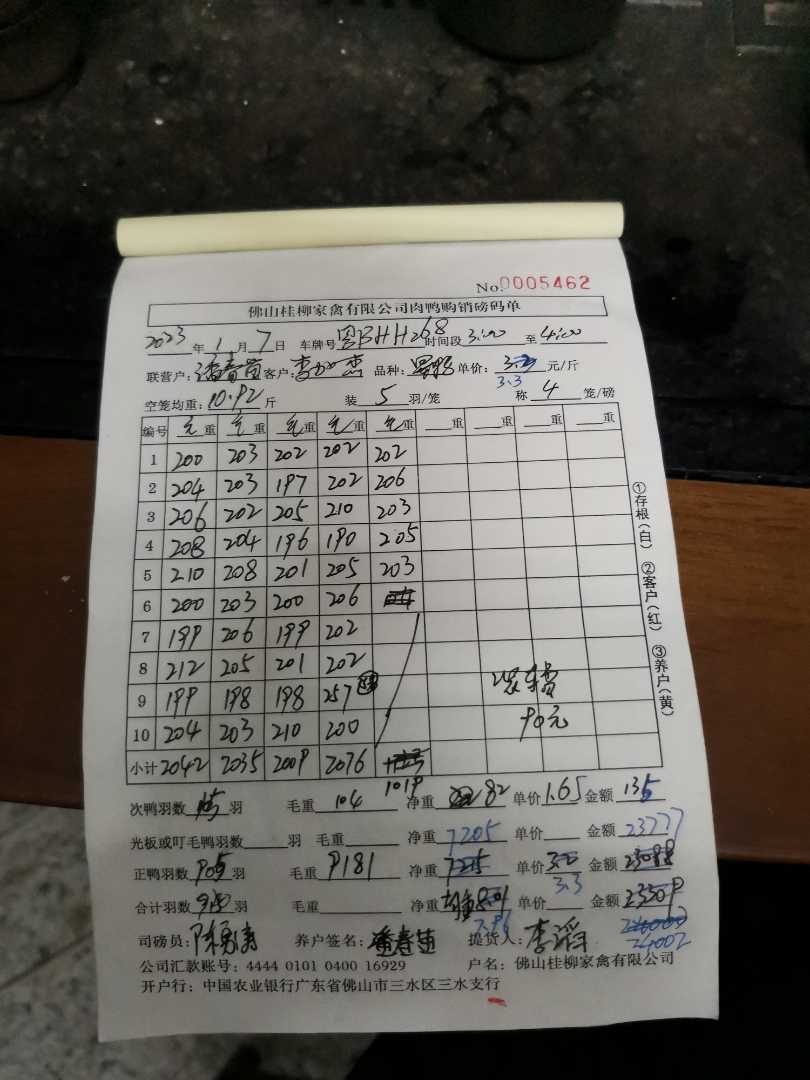 No.0005462
佛山桂柳家禽有限公司肉鸭购销磅码单
2023年1月7日 车牌号 粤BHH268 时间段3:00至4:00
联营户: 客户: 品种: 单价: 3.3 元/斤
空笼均重: 10.92斤 装5羽/笼 称4笼/磅
编号 毛重 毛重 毛重 毛重 毛重 重 重 重 重
1 200 203 202 202 202
2 204 203 197 202 206
3 206 202 205 210 203
4 208 204 196 190 205
5 210 208 201 205 203
6 200 203 200 206
7 199 206 199 202
8 212 205 201 202
9 199 198 198 257
10 204 203 210 200
小计 2042 2035 2009 2076
1019
装车费
90元
①存根(白) ②客户(红) ③养户(黄)
次鸭羽数 羽 毛重 104 净重 82 单价1.65 金额 135
光板或叮毛鸭羽数 羽 毛重 净重 7205 单价 金额 23777
正鸭羽数 905 羽 毛重 9181 净重 7215 单价 3.2 金额 23088
3.3
合计羽数 羽 毛重 净重 单价 金额
7.96
24002
司磅员: 养户签名: 提货人:
公司汇款账号: 4444 0101 0400 16929 户名: 佛山桂柳家禽有限公司
开户行: 中国农业银行广东省佛山市三水区三水支行